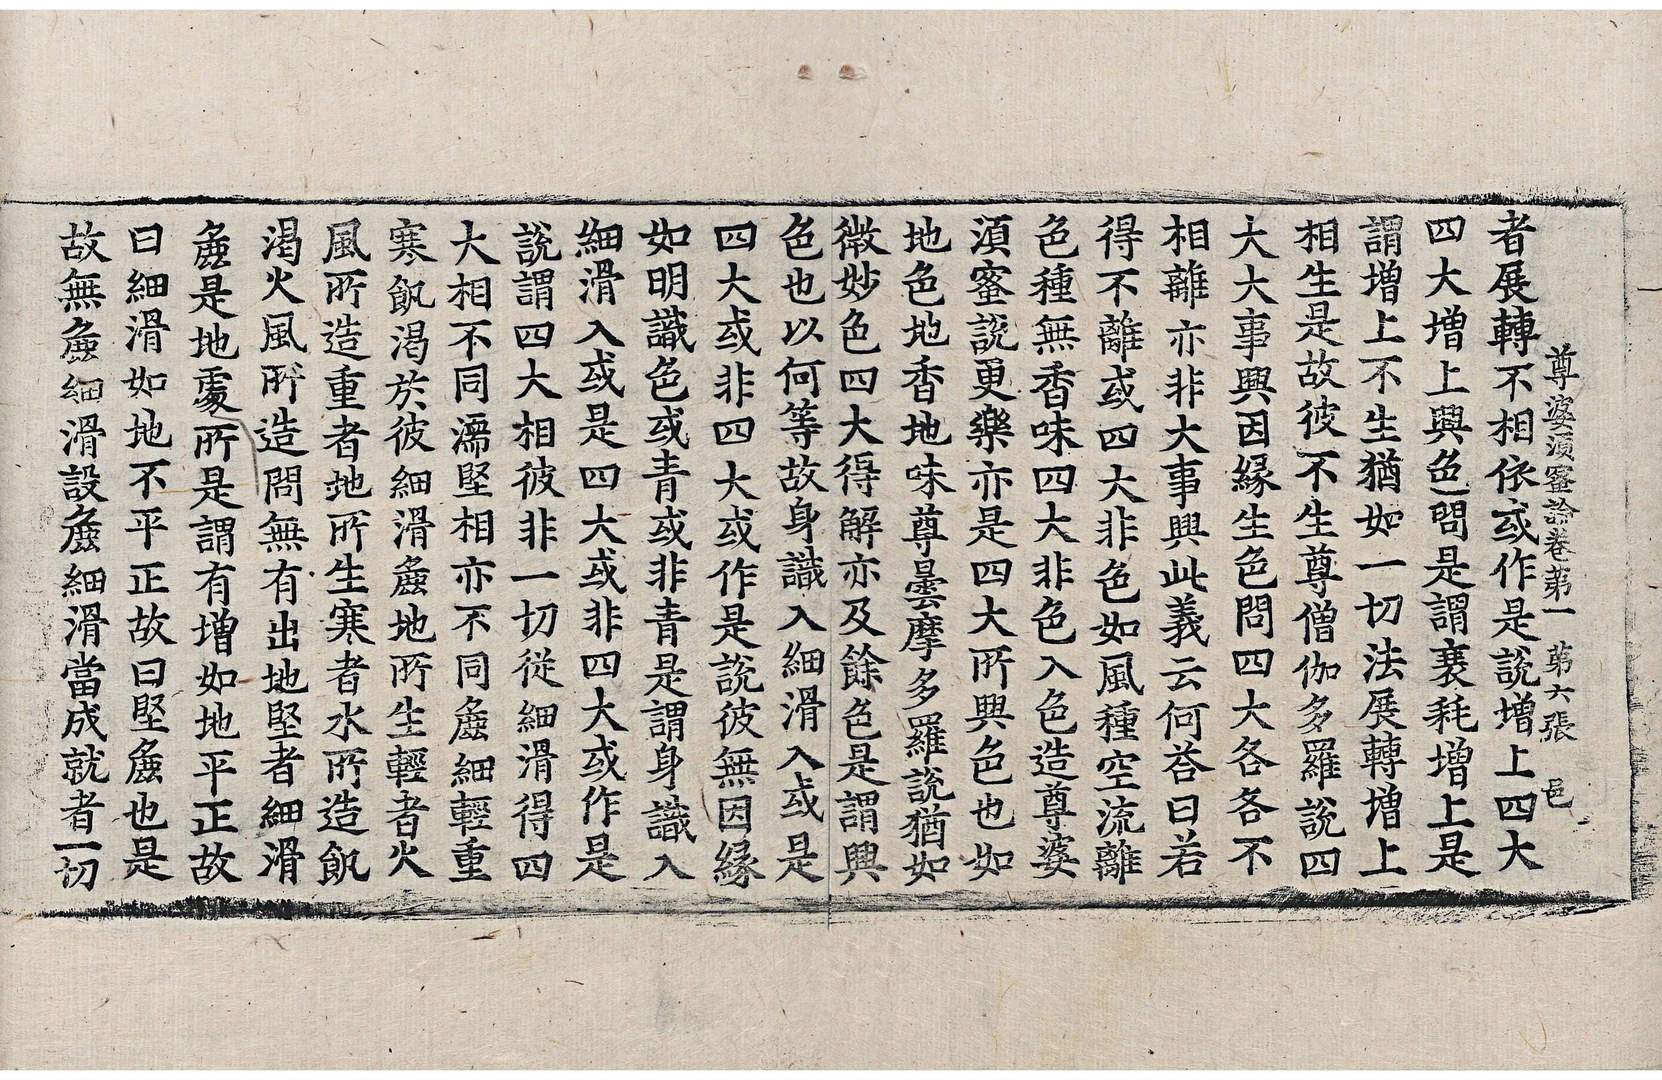 尊婆湏蜜論卷第一　第六張　邑
者展轉不相依或作是說增上四大
四大增上興色問是謂衰耗增上是
謂增上不生猶如一切法展轉增上
相生是故彼不生尊僧伽多羅說四
大大事興因緣生色問四大各各不
相離亦非大事興此義云何荅曰若
得不離或四大非色如風種空流離
色種無香味四大非色入色造尊婆
湏蜜說更樂亦是四大所興色也如
地色地香地味尊曇摩多羅說猶如
微妙色四大得解亦及餘色是謂興
色也以何等故身識入細滑入或是
四大或非四大或作是說彼無因緣
如明識色或青或非青是謂身識入
細滑入或是四大或非四大或作是
說謂四大相彼非一切從細滑得四
大相不同濡堅相亦不同麁細輕重
寒飢渴於彼細滑麁地所生輕者火
風所造重者地所生寒者水所造飢
渴火風所造問無有出地堅者細滑
麁是地處所是謂有增如地平正故
曰細滑如地不平正故曰堅麁也是
故無麁細滑設麁細滑當成就者一切